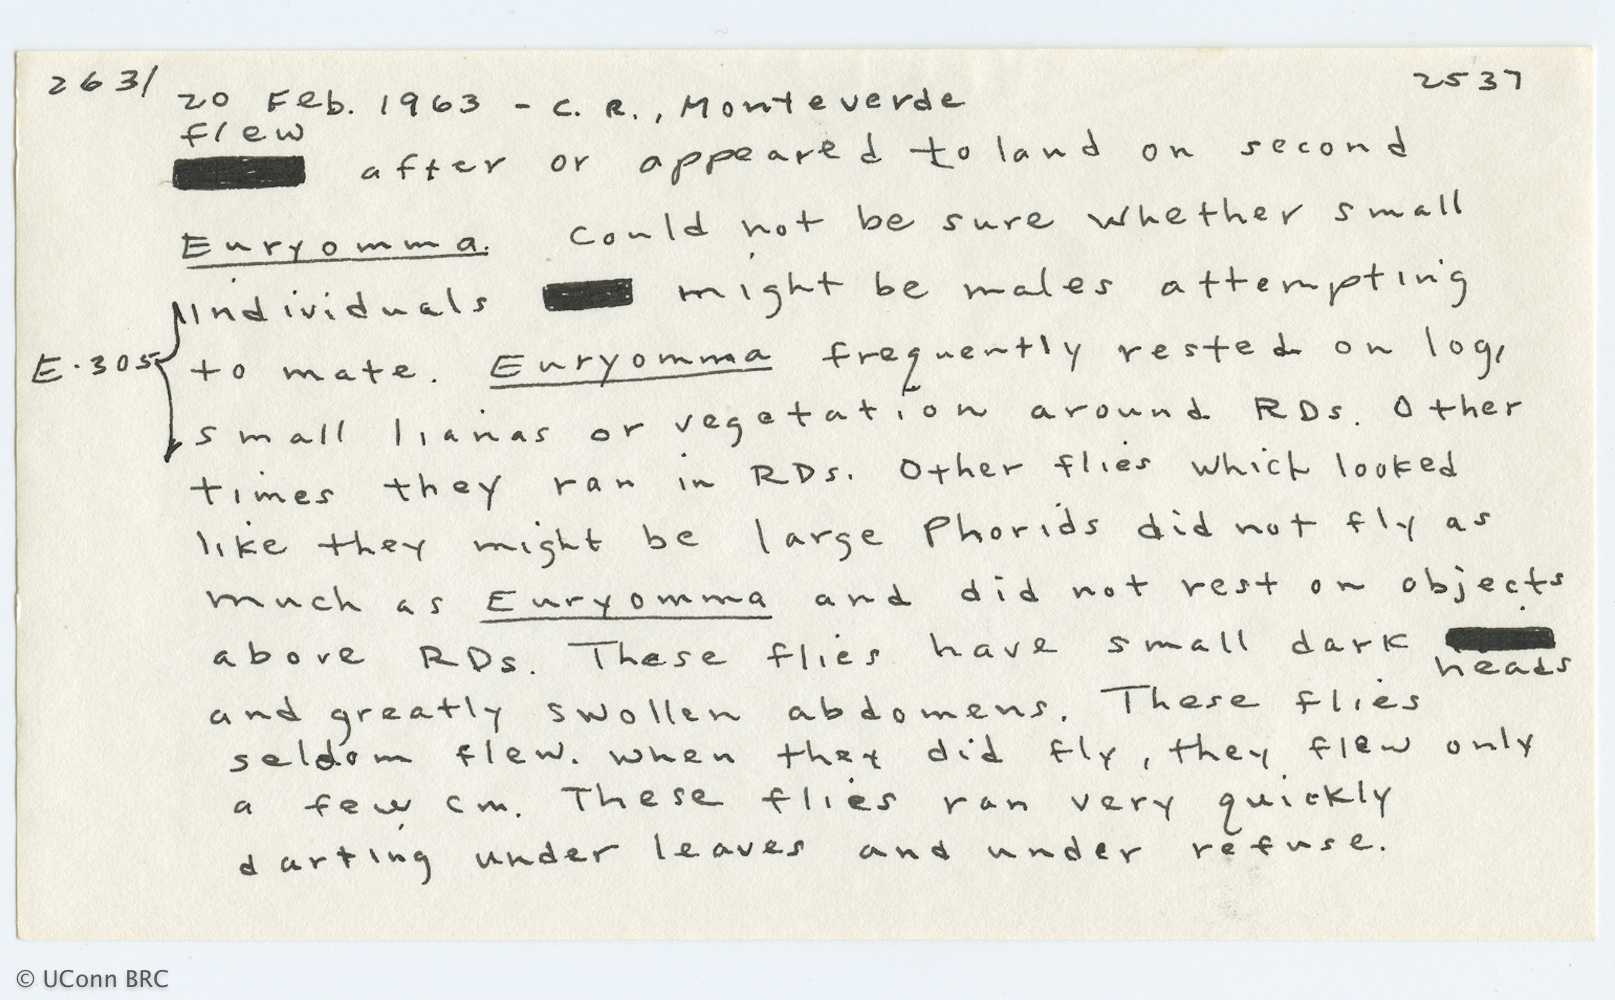 2631
2537
20 Feb. 1963 - C. R., Monteverde
flew
after or appeared to land on second
Euryomma. Could not be sure whether small
individuals might be males attempting
E-305
to mate. Euryomma frequently rested on log,
small lianas or vegetation around RDs. Other
times they ran in RDs. Other flies which looked
like they might be large Phorids did not fly as
much as Euryomma and did not rest on objects
above RDs. These flies have small dark
heads
and greatly swollen abdomens. These flies
seldom flew. When they did fly, they flew only
a few cm. These flies ran very quickly
darting under leaves and under refuse.
© UConn BRC